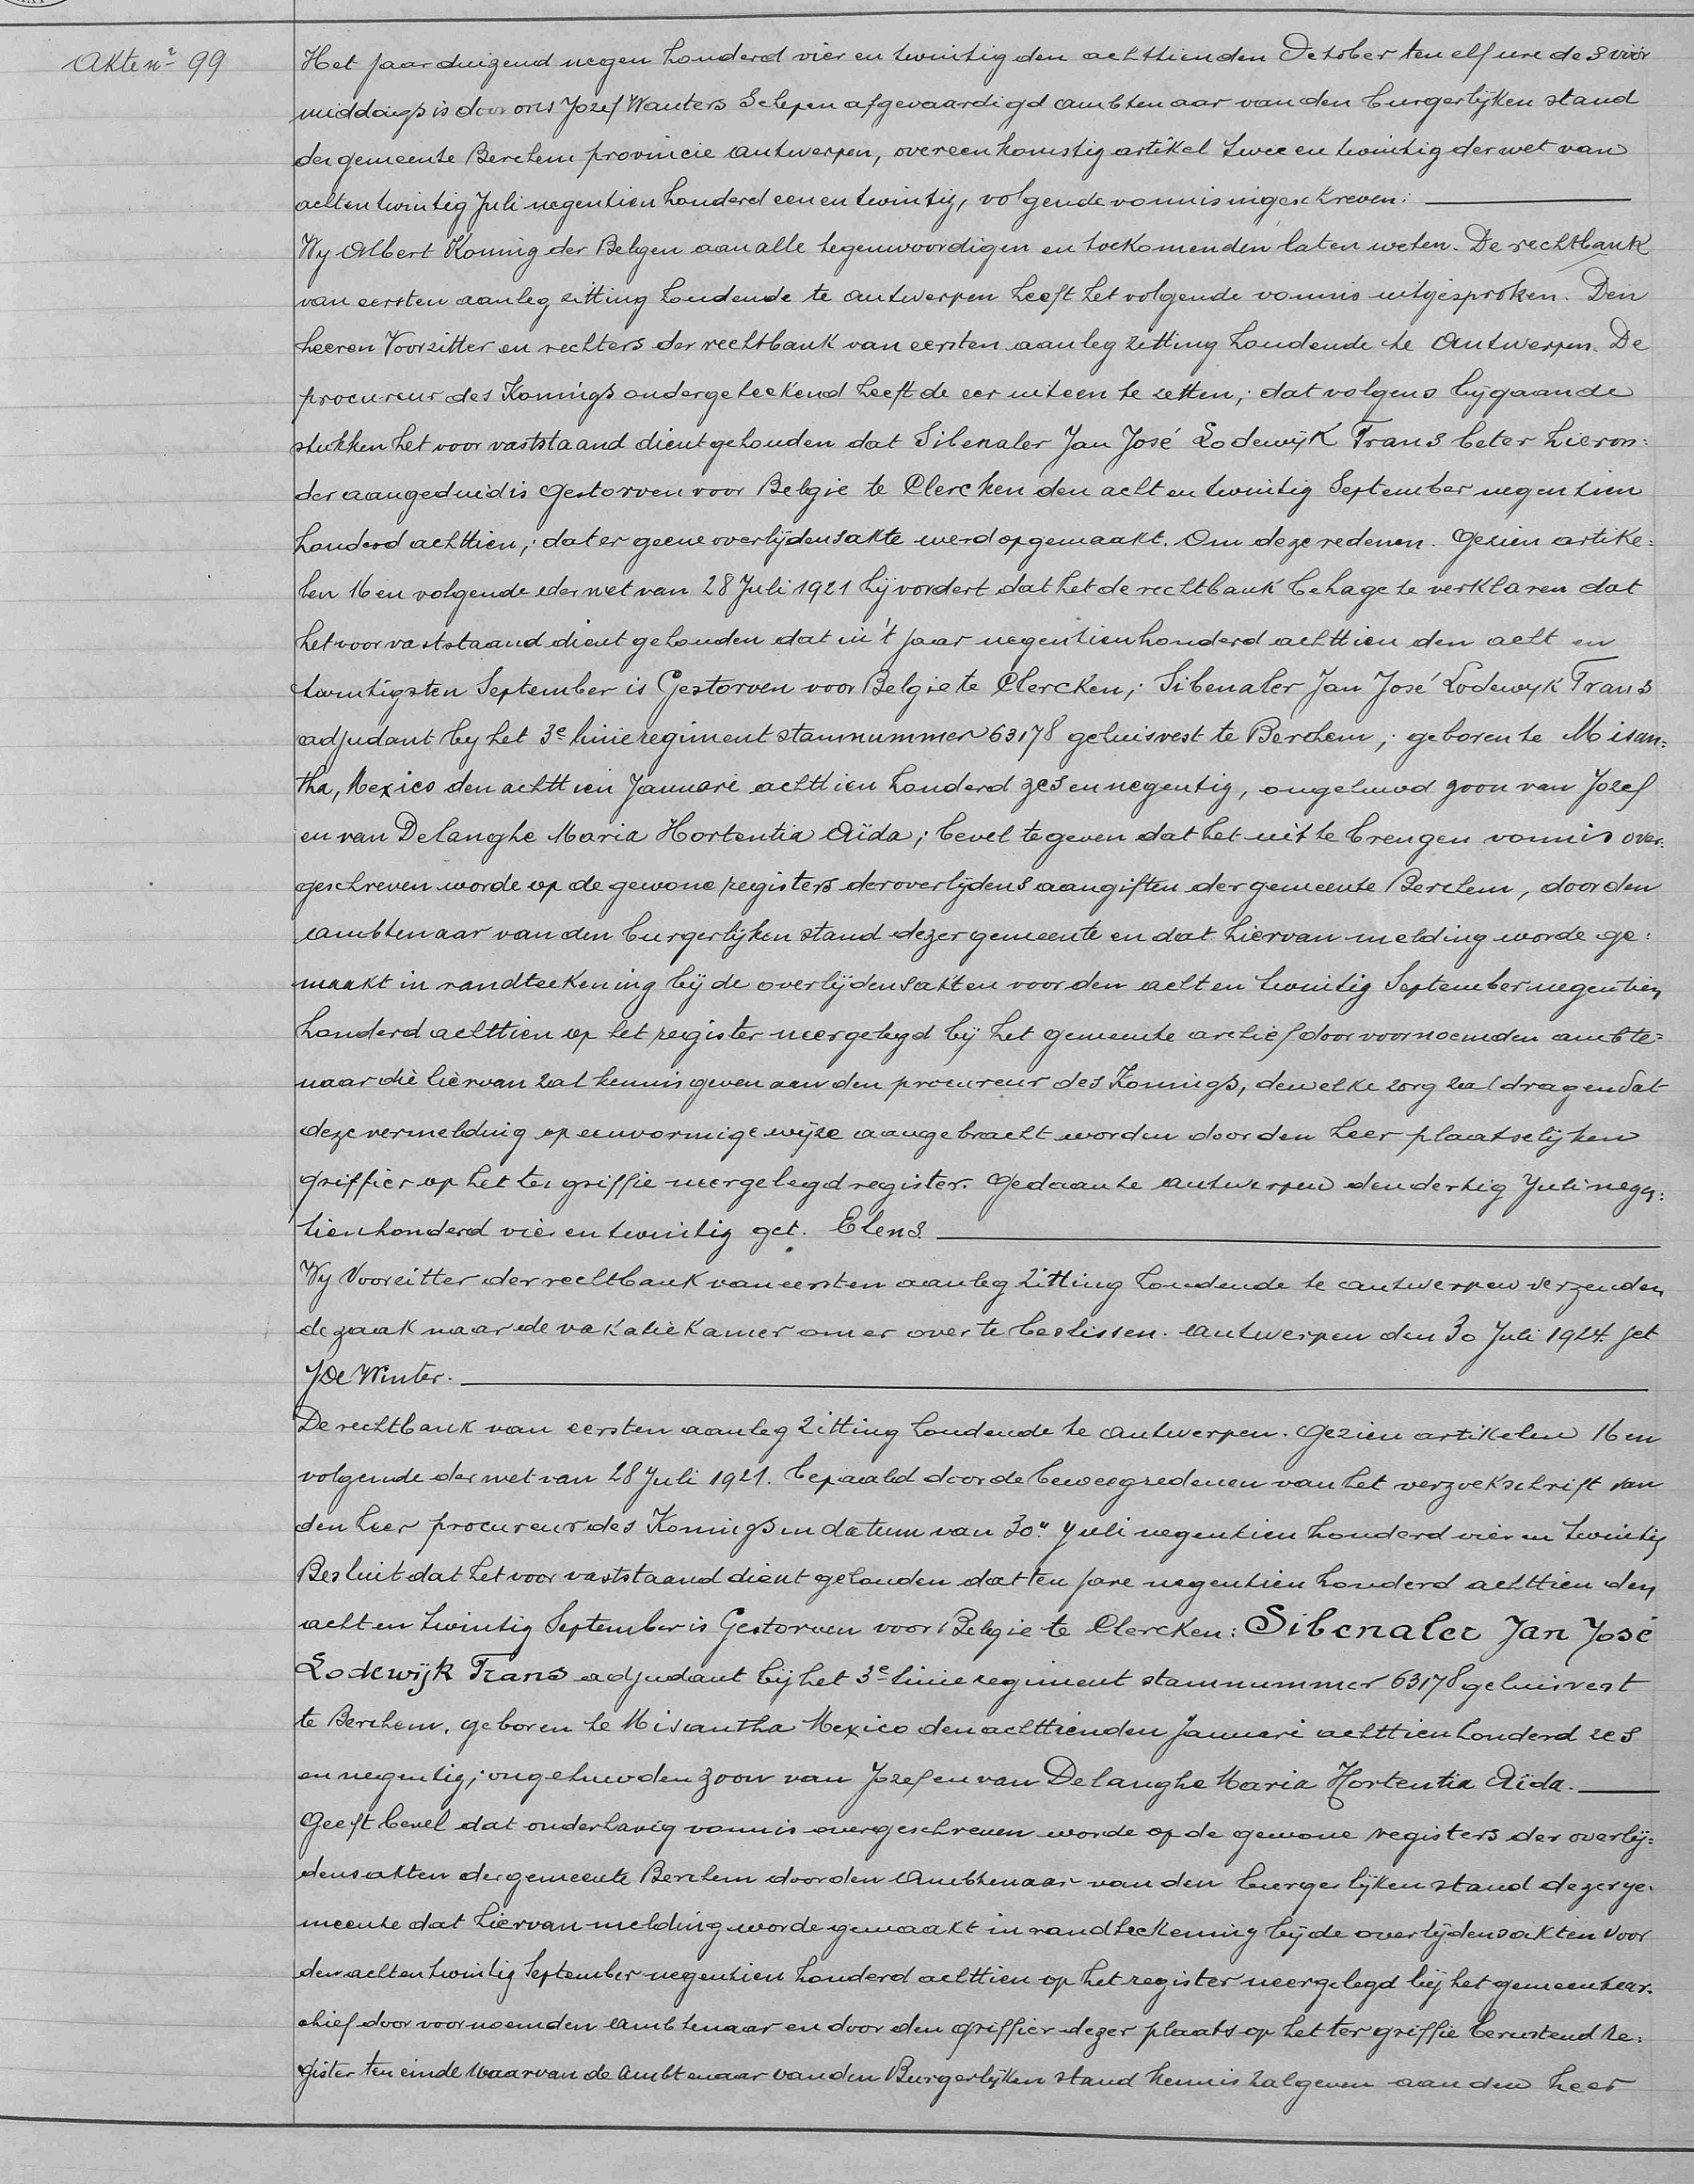 Akte nr 99
Het jaar duizend negen honderd vier en twintig den achttienden October ten elf ure des vóór
middags is door ons Jozef Wauters Schepen afgevaardigd ambtenaar van den burgerlijken stand
der gemeente Berchem provincie Antwerpen, overeenkomstig artikel twee en twintig der wet van
acht en twintig Juli negentien honderd een en twintig, volgende vonnis ingeschreven:
Wy Albert Koning der Belgen aan alle tegenwoordigen en toekomenden laten weten. De rechtbank
van eersten aanleg zitting houdende te Antwerpen heeft het volgende vonnis uitgesproken. Den
heeren Voorzitter en rechters der rechtbank van eersten aanleg zitting houdende te Antwerpen. De
procureur des Konings ondergeteekend heeft de eer uiteen te zetten; dat volgens bijgaande
stukken het voor vaststaand dient gehouden dat Sibenaler Jan José Lodewijk Frans beter hieron=
der aangeduid is Gestorven voor Belgie te Clercken den acht en twintig September negentien
honderd achttien; dat er geene overlijdensakte werd opgemaakt. Om deze redenen. Gezien artike=
len 16 en volgende der wet van 28 Juli 1921 hij vordert dat het de rechtbank behage te verklaren dat
het voor vaststaand dient gehouden dat in 't jaar negentienhonderd achttien den acht en
twintigsten September is Gestorven voor Belgie te Clercken; Sibenaler Jan José Lodewyk Frans
adjudant by het 3e linie regiment stamnummer 63178 gehuisvest te Berchem; geboren te Misan=
tha, Mexico den achttien Januari achttien honderd zes en negentig, ongehuwd zoon van Jozef
en van Delanghe Maria Hortentia Aïda; bevel te geven dat het uit te brengen vonnis over=
geschreven worde op de gewone registers der overlijdens aangiften der gemeente Berchem, door den
ambtenaar van den burgerlijken stand dezer gemeente en dat hiervan melding worde ge=
maakt in randteekening bij de overlijdensakten voor den acht en twintig September negentien
honderd achttien op het register neergelegd bij het gemeente archief door voornoemden ambte=
naar die hiervan zal kennis geven aan den procureur des Konings, dewelke zorg zal dragen dat
deze vermelding op eenvormige wijze aangebracht worden door den heer plaatselijken
griffier op het ter griffie neergelegd register. Gedaan te Antwerpen den dertig Juli negen=
tienhonderd vier en twintig get. Elens.
Wy Voorzitter der rechtbank van eersten aanleg zitting houdende te Antwerpen verzenden
de zaak naar de vakatiekamer om er over te beslissen. Antwerpen den 30 Juli 1924. get
J De Winter.
De rechtbank van eersten aanleg zitting houdende te Antwerpen. Gezien artikelen 16 en
volgende der wet van 28 Juli 1921. bepaald door de beweegredenen van het verzoekschrift van
den heer procureur des Konings in datum van 30n Juli negentien honderd vier en twintig
Besluit dat het voor vaststaand dient gehouden dat ten jare negentien honderd achttien den
acht en twintig September is Gestorven voor Belgie te Clercken: Sibenaler Jan José
Lodewijk Frans adjudant bij het 3e linie regiment stamnummer 63178 gehuisvest
te Berchem, geboren te Misantha Mexico den achttienden Januari achttien honderd zes
en negentig; ongehuwden zoon van Jozef en van Delanghe Maria Hortentia Aïda.
Geeft bevel dat onderhavig vonnis overgeschreven worde op de gewone registers der overlij=
densakten der gemeente Berchem door den Ambtenaar van den burgerlijken stand dezer ge=
meente dat hiervan melding worde gemaakt in randteekening bij de overlijdensakten voor
den acht en twintig September negentien honderd achttien op het register neergelegd bij het gemeentear=
chief door voornoemden ambtenaar en door den griffier dezer plaats op het ter griffie berustend re=
gister ten einde waarvan de Ambtenaar van den Burgerlijken stand kennis zal geven aan den heer